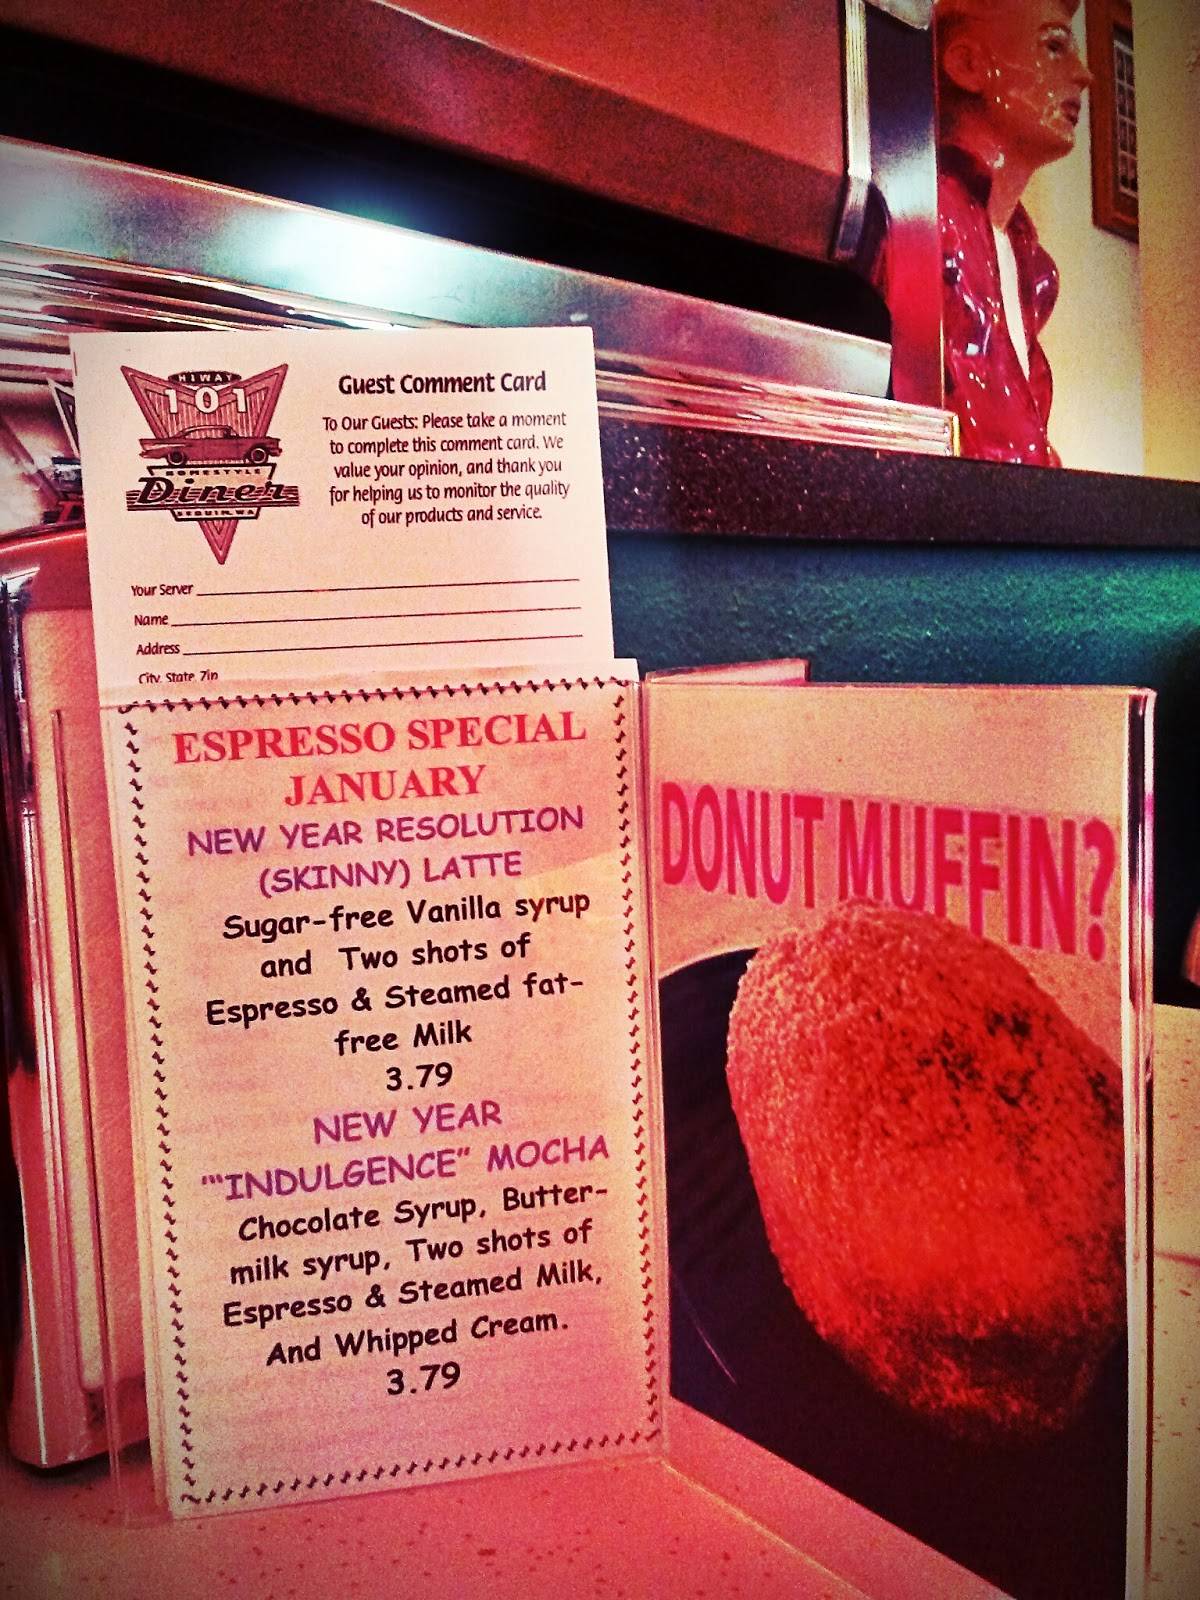 HIWAY
101
HOMESTYLE
Diner
SEQUIM, WA
Guest Comment Card
To Our Guests: Please take a moment
to complete this comment card. We
value your opinion, and thank you
for helping us to monitor the quality
of our products and service.
Your Server
Name
Address
City, State, Zip
ESPRESSO SPECIAL
JANUARY
NEW YEAR RESOLUTION
(SKINNY) LATTE
Sugar-free Vanilla syrup
and Two shots of
Espresso & Steamed fat-
free Milk
3.79
NEW YEAR
"“INDULGENCE” MOCHA
Chocolate Syrup, Butter-
milk syrup, Two shots of
Espresso & Steamed Milk,
And Whipped Cream.
3.79
DONUT MUFFIN?